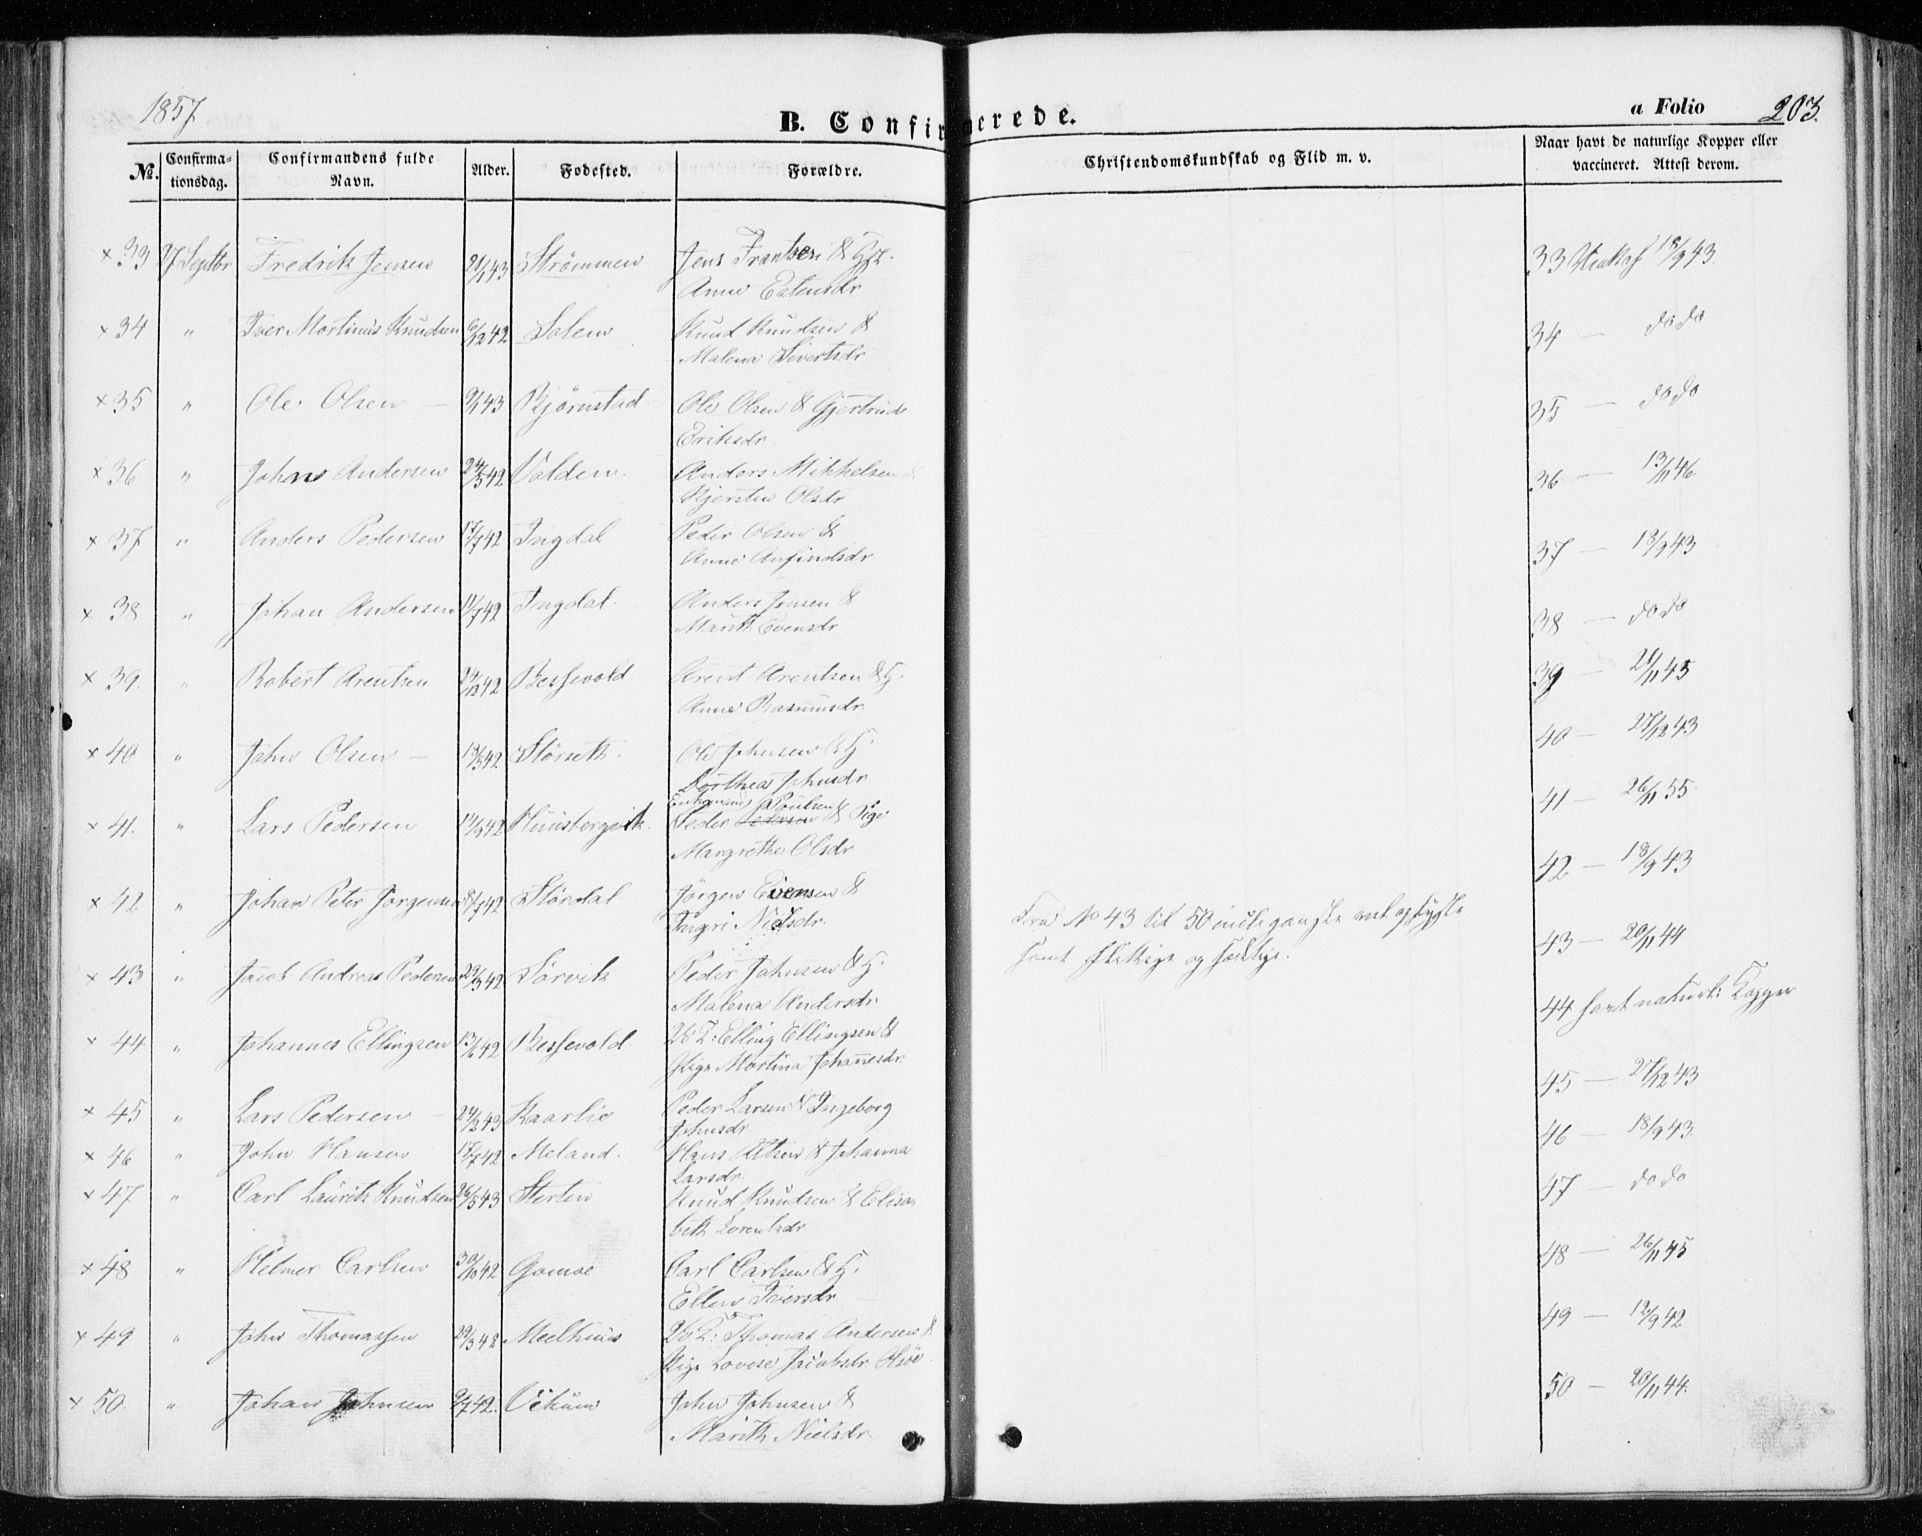 1857.
B. Confirmerede.
a Folio 203.
No. Confirmationsdag. Confirmandens fulde Navn. Alder. Fødested. Forældre. Christendomskundskab og Flid m. v. Naar havt de naturlige Kopper eller vaccineret. Attest derom.
× 33 27 Septbr Fredrik Jensen 21/1 43 Strømmen Jens Frantsen & H. 33 18/9 43.
Anne Estensdr
× 34 " Iver Martinus Knudsen 6/12 42 Solem Knud Knudsen & 34 — do do
Malena Sivertsdr
× 35 " Ole Olsen — 9/1 43 Bjørnstad Ole Olsen & Gjertrude 35 — do do
Eriksdr
× 36 " Johan Andersen 24/5 42 Valden. Anders Mikkelsen & 36 — 13/11 46.
Kjersten Olsdr
× 37 " Anders Pedersen 17/7 42 Ingdal Peder Olsen & 37 — 18/9 43
Anne Anfindsdr
× 38 " Johan Andersen 11/7 42 Ingdal. Anders Jensen & 38 — do do
Marith Evensdr
× 39. " Robert Arentsen 29/12 42 Bessevold Arent Arentsen & H. 39 — 21/11 45
Anne Rasmusdr
× 40 " John Olsen — 18/5 42 Størseth. Ole Johnsen & H. 40 — 27/12 43
Dorthea Johnsdr
Enkemand Poulsen
× 41. " Lars Pedersen 14/9 42 Hunsbergvik. Peder Pedersen & Pige 41 — 26/11 55.
Margrethe Olsdr
× 42 " Johan Peter Jørgensen 8/7 42 Størdal Jørgen Evensen & 42 — 18/9 43
Ingri Nielsdr.
Fra No 43 til 50 incl:
samt flittige og sædelige.
× 43 " Jacob Andreas Pedersen 29/3 42 Sørvik Peder Johnsen & H. 43 — 20/11 44
Malena Andersdr.
× 44 " Johannes Ellingsen 13/6 42 Bessevold Elling Ellingsen & 44 havt naturl: Kopper
Pige Martina Johannesdr.
× 45 " Lars Pedersen — 24/2 43 Kaarlie Peder Larsen & Ingeborg 45 — 27/12 43
Johnsdr
× 46 " John Hansen 17/7 42 Meland. Hans & Johanna 46 — 18/9 43.
Larsdr.
× 47 " Carl Lauritz Knudsen 26/5 43 Sterten Knud Knudsen & Elisa 47 — do do
beth Lorentsdr
× 48 " Helmer Carlsen 30/10 42 Gamoe Carl Carlsen & H. 48 — 26/11 45
Ellen Iversdr
× 49 " John Thomassen 29/3 42 Meelhuus Thomas Andersen & 49 — 12/9 42
Pige Lovise Jacobsdr
× 50. " Johan Johnsen 9/7 42. John Johnsen & 50 — 20/11 44.
Marith Nielsdr.